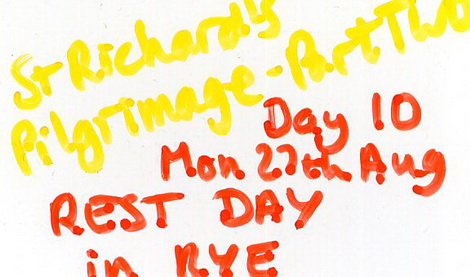 St Richard's
Pilgrimage - Part Two
Day 10
Mon 27th Aug
REST DAY
in RYE